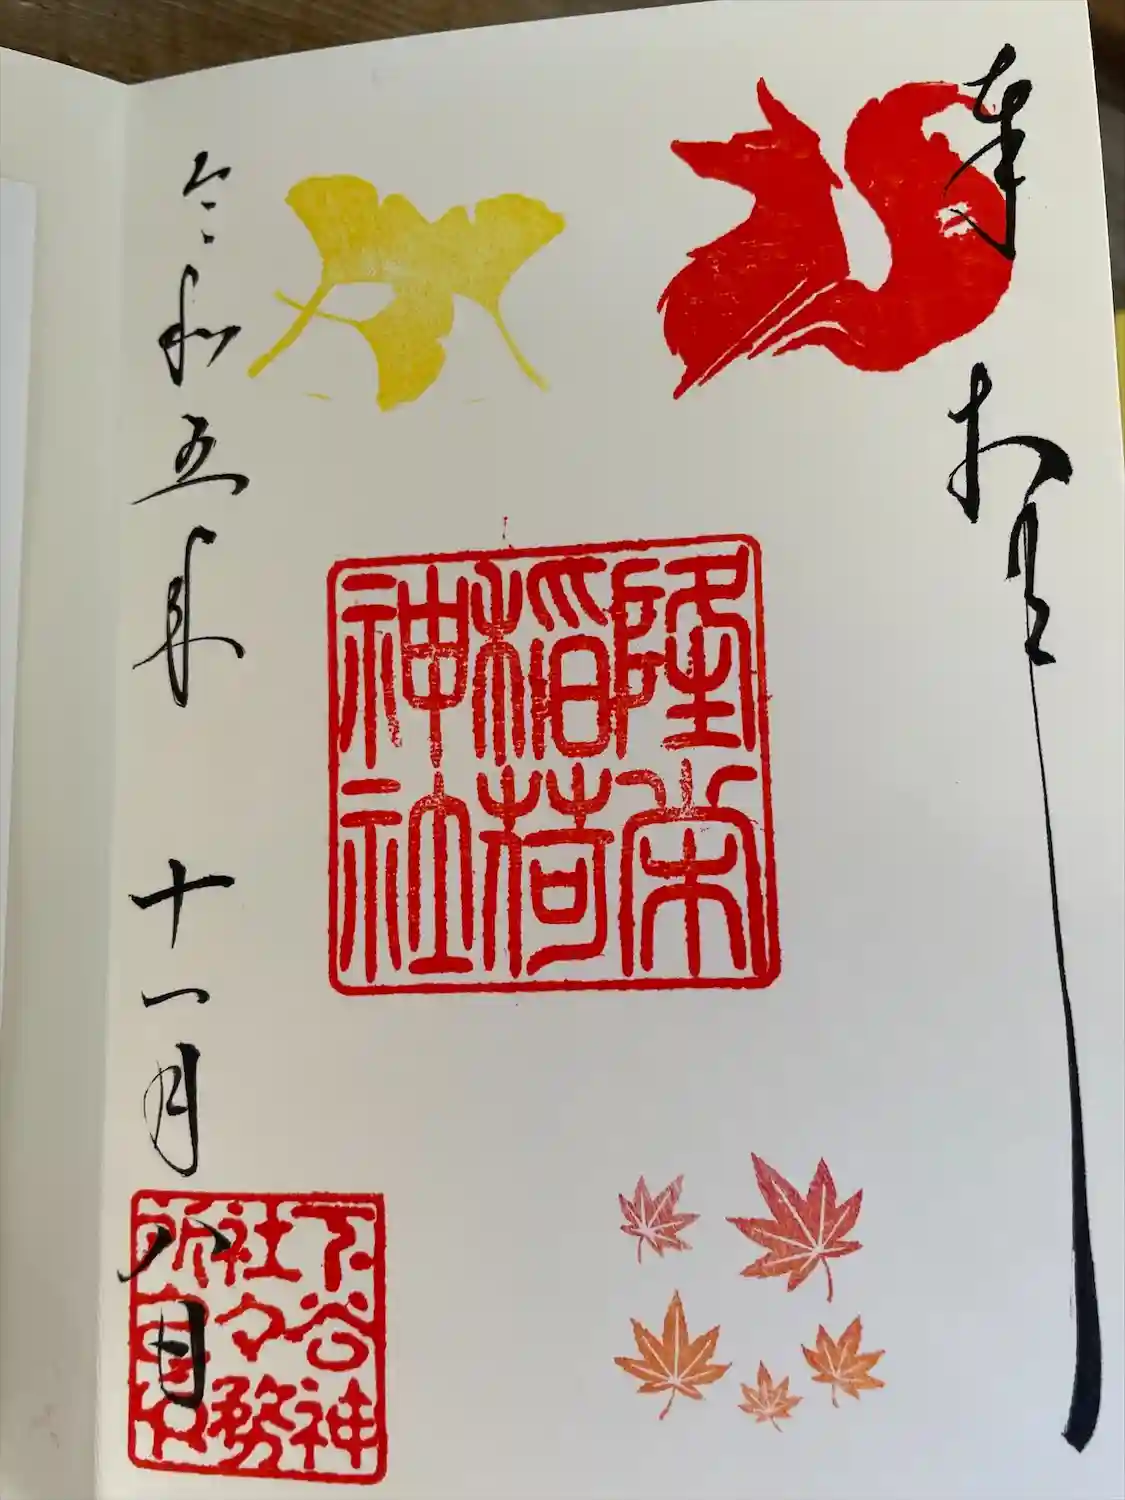 奉拝
隆栄
稲荷
神社
令和五年 十一月 八日
下谷神
社々務
所之印